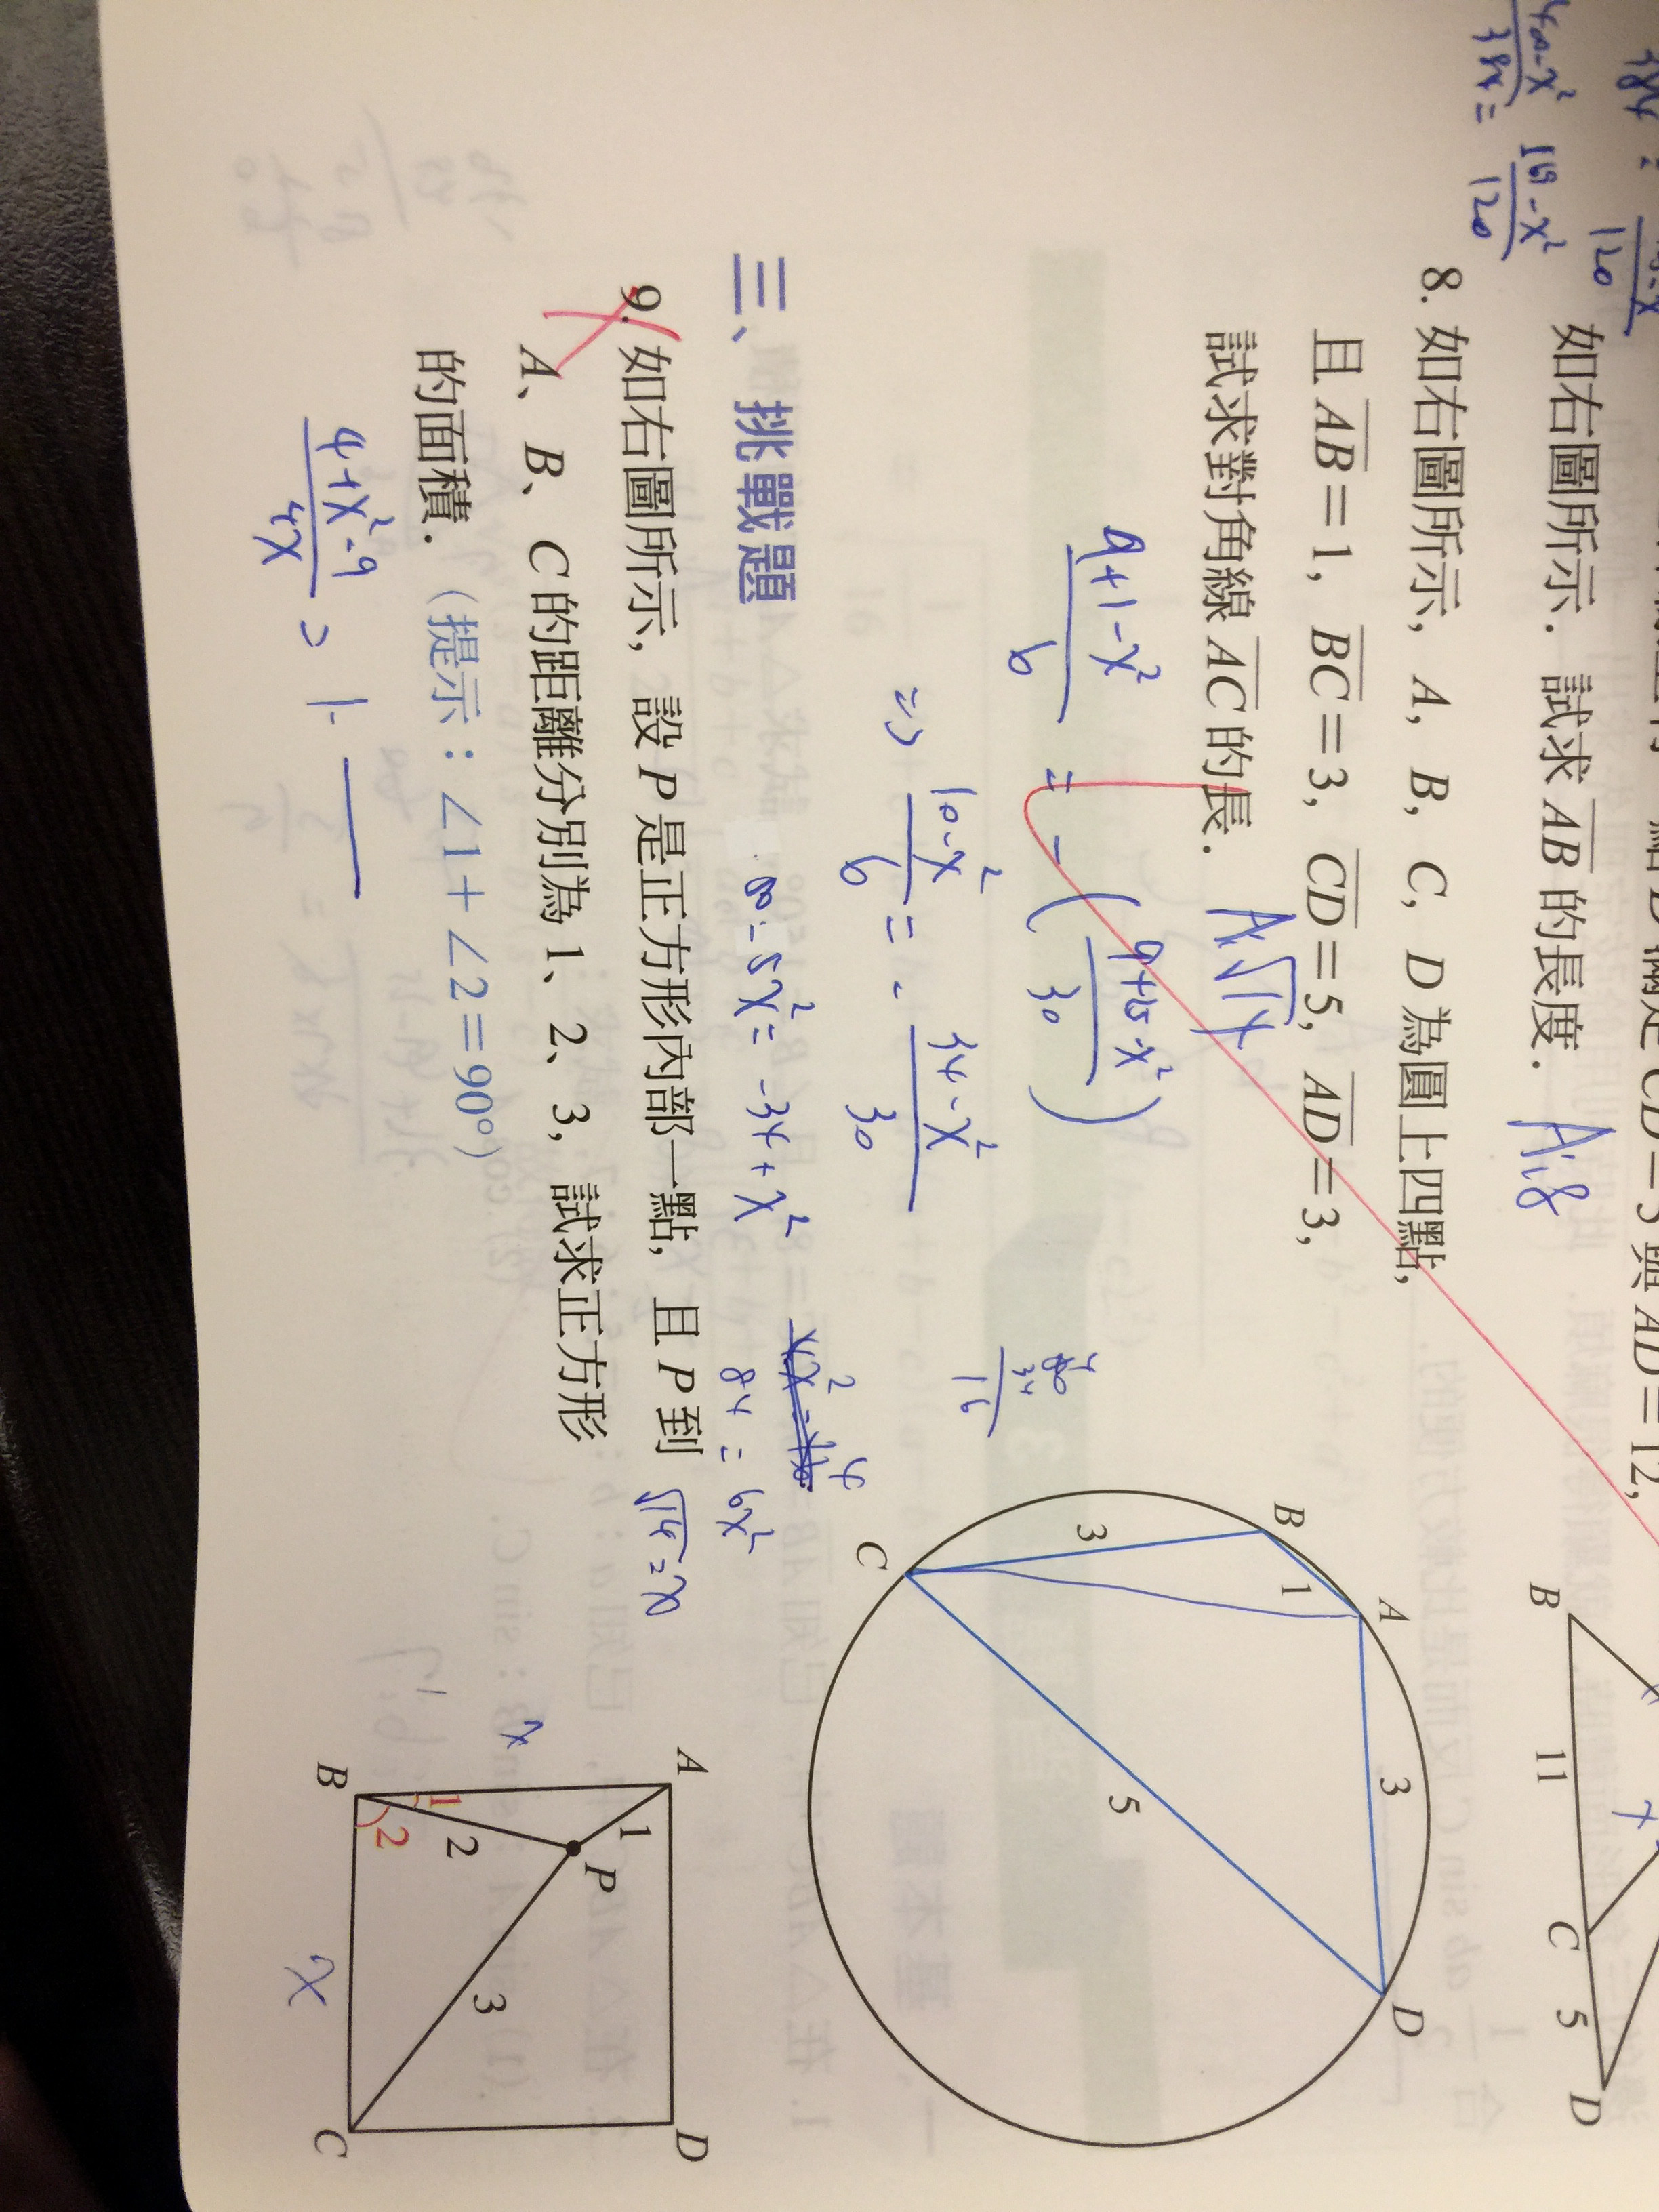 如右圖所示. 試求 AB 的長度. A:8
8. 如右圖所示, A, B, C, D 為圓上四點,
且 AB=1, BC=3, CD=5, AD=3,
試求對角線 AC 的長. A:√14
(9+1-x²)/6 = -((9+25-x²)/30)
=> (10-x²)/6 = -(34-x²)/30
50-5x² = -34+x²
84 = 6x²
x=√14
B
A
D
C
1
3
3
5
B
11
C
5
D
三、挑戰題
9. 如右圖所示, 設 P 是正方形內部一點, 且 P 到
A、B、C 的距離分別為 1、2、3, 試求正方形
的面積. (提示:∠1+∠2=90°)
(4+x²-9)/4x = 1-
A
D
B
C
P
1
2
3
1
2
x
x